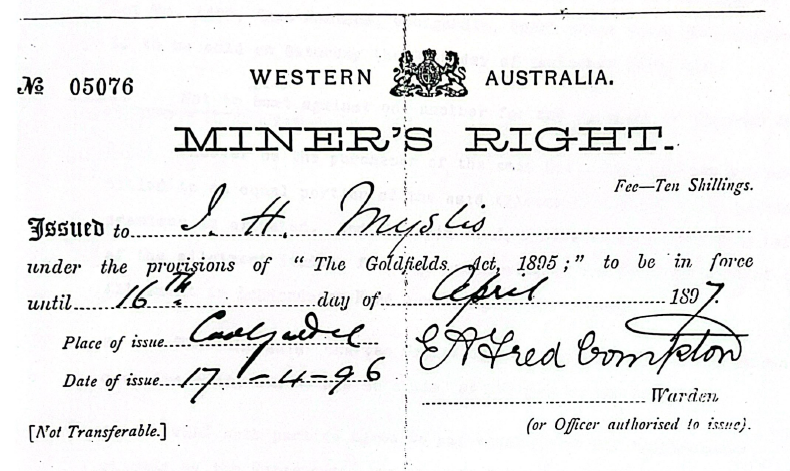 № 05076
WESTERN AUSTRALIA.
MINER'S RIGHT.
Fee—Ten Shillings.
Issued to J. H. Myslis
under the provisions of "The Goldfields Act, 1895;" to be in force
until 16TH day of April 1897.
Place of issue Coolgardie
Date of issue 17-4-96
E A Fred Compton
Warden
[Not Transferable.]
(or Officer authorised to issue).